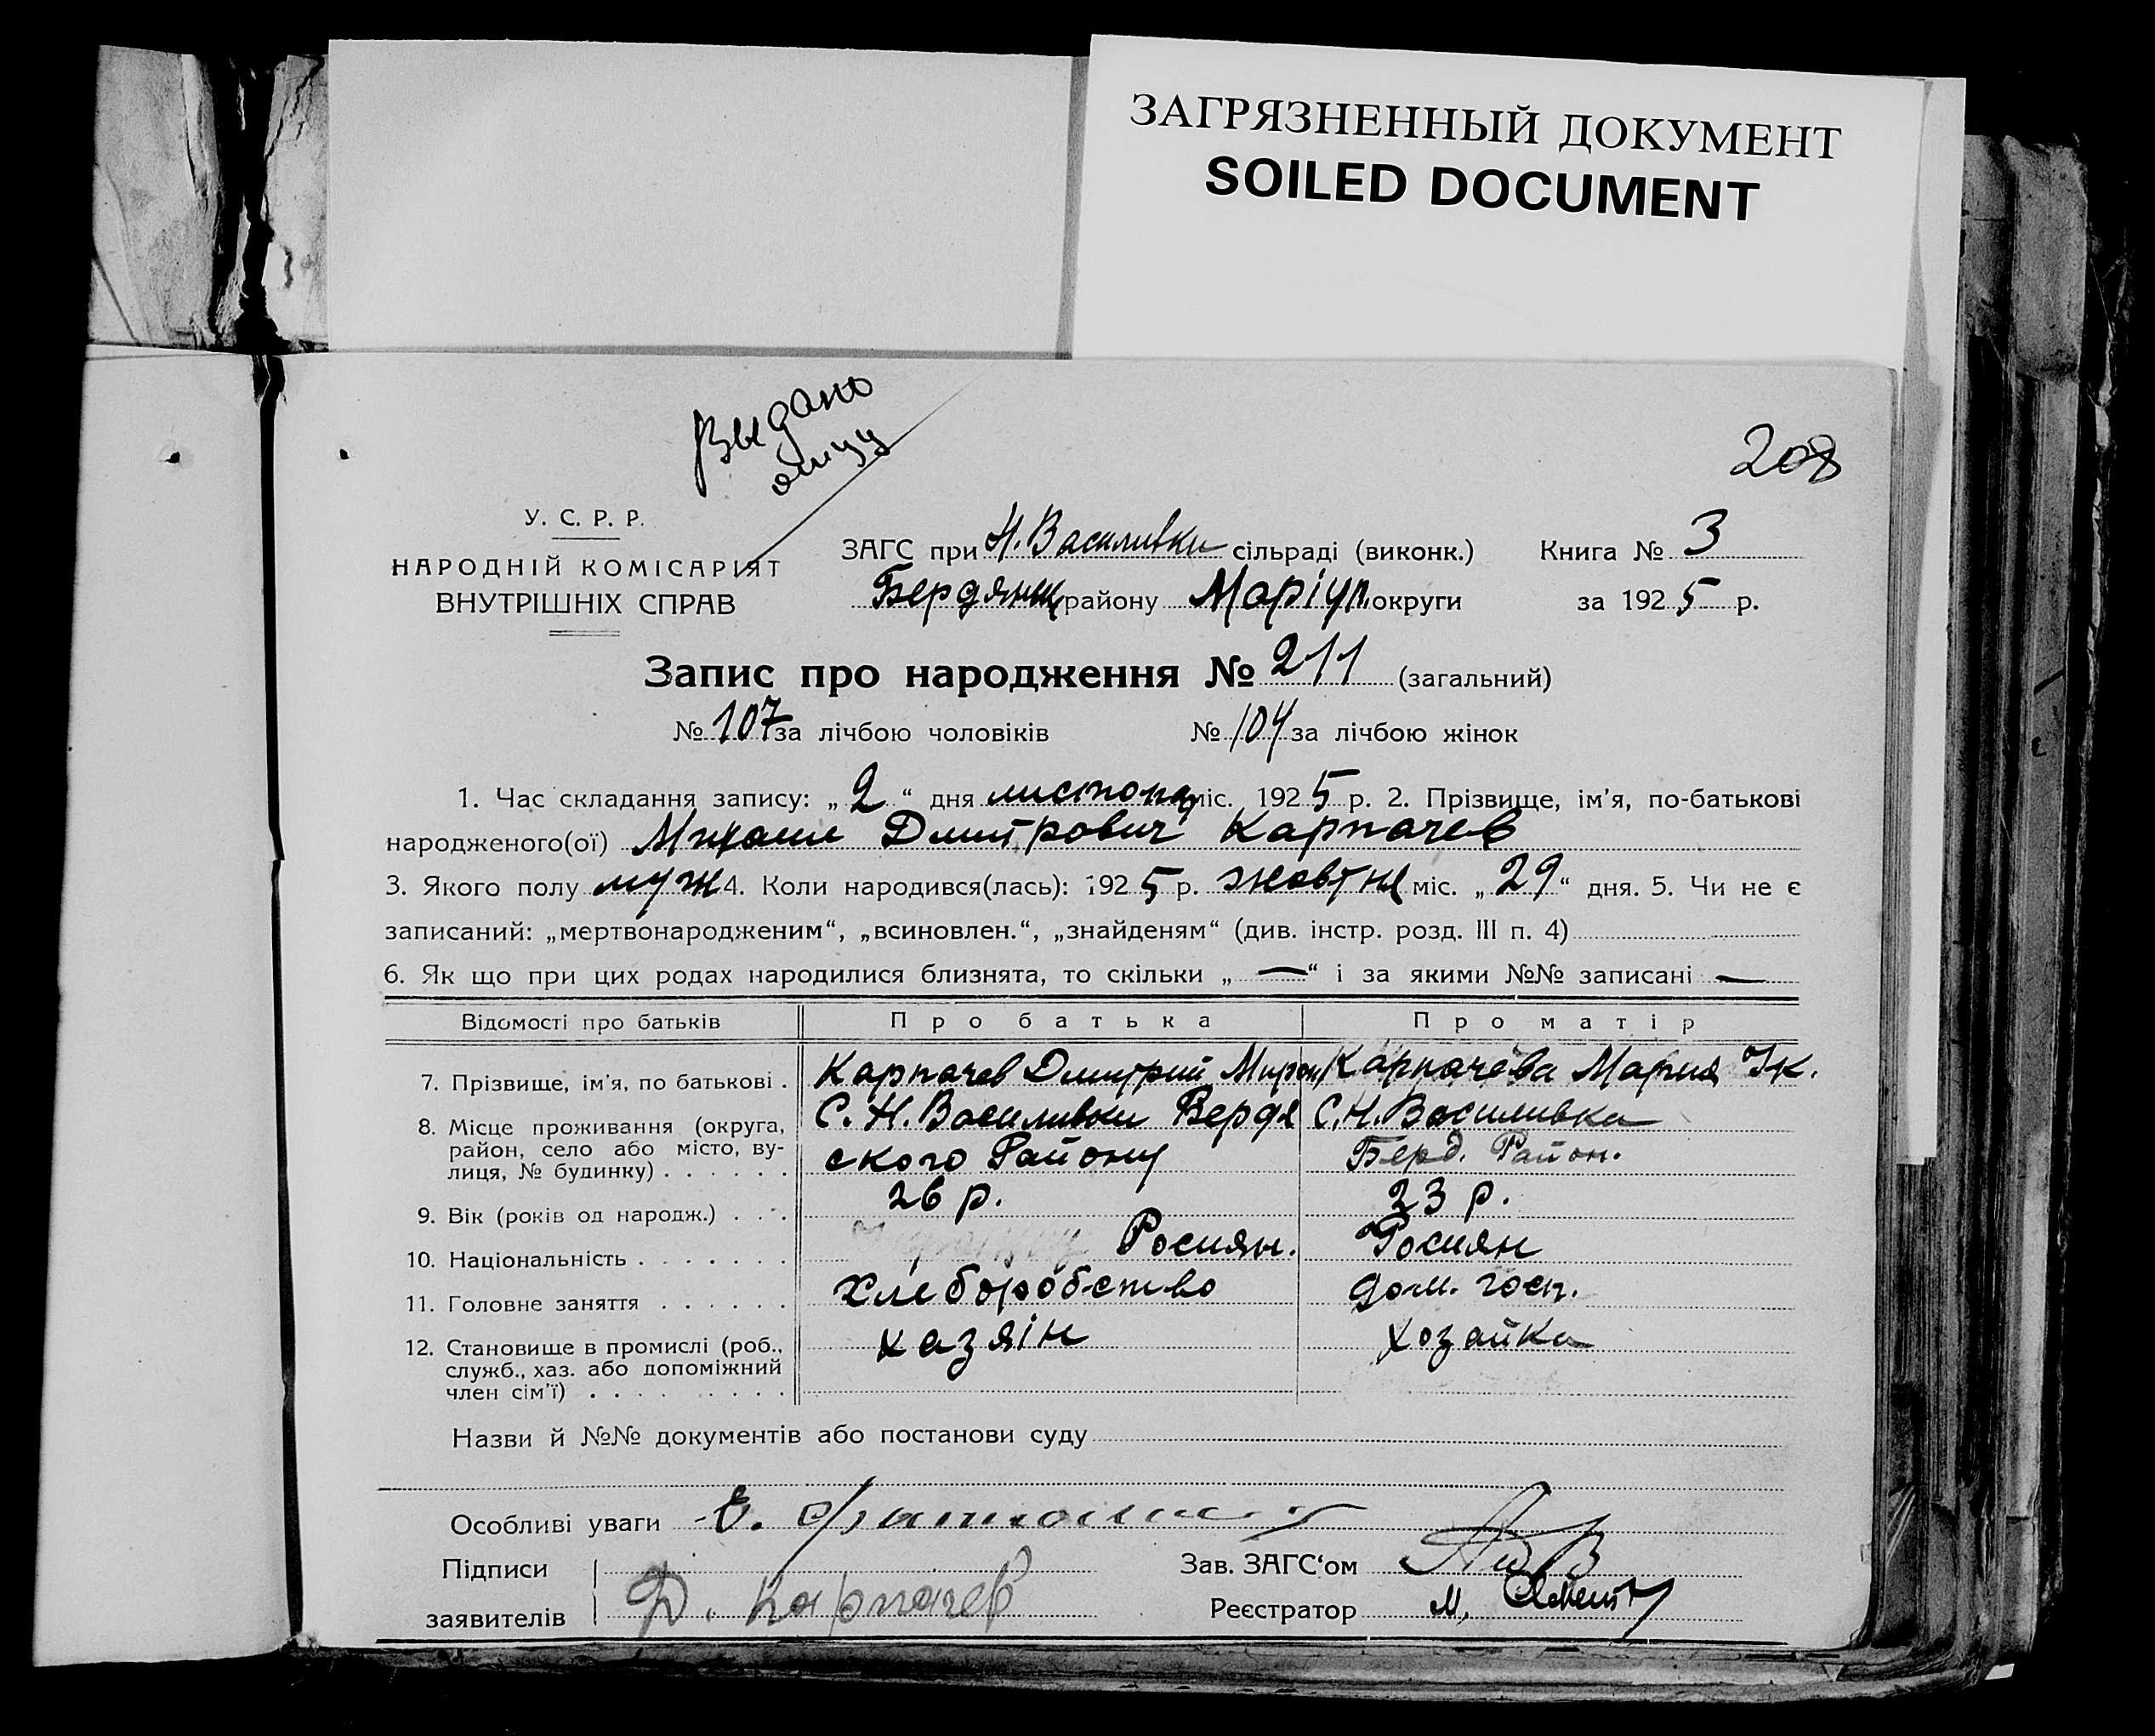 ЗАГРЯЗНЕННЫЙ ДОКУМЕНТ
SOILED DOCUMENT
Выдано
208
У. С. Р. Р.
НАРОДНІЙ КОМІСАРІЯТ
ВНУТРІШНІХ СПРАВ
ЗАГС при Н. Василивки сільраді (виконк.) Книга № 3
Бердянськ району Маріуп. округи за 1925 р.
Запис про народження № 211 (загальний)
№ 107 за лічбою чоловіків № 104 за лічбою жінок
1. Час складання запису: „2“ дня листопад міс. 1925 р. 2. Прізвище, ім'я, по-батькові
народженого(ої) Михаил Дмитрович Карпачев
3. Якого полу муж 4. Коли народився(лась): 1925 р. жовтня міс. „29“ дня. 5. Чи не є
записаний: „мертвонародженим“, „всиновлен.“, „знайденям“ (див. інстр. розд. III п. 4)
6. Як що при цих родах народилися близнята, то скільки „—“ і за якими №№ записані —
Відомості про батьків Про батька Про матір
7. Прізвище, ім'я, по батькові . Карпачев Дмитрий Мирон. Карпачева Мария Ік.
8. Місце проживання (округа, район, село або місто, вулиця, № будинку) . . . . . . С. Н. Василивки Бердя С. Н. Василивка
ского Району Берд. Район.
9. Вік (років од народж.) . . . 26 р. 23 р.
10. Національність . . . . . . . Росиян. Росиян
11. Головне заняття . . . . . . Хлеборобство дом. госп.
12. Становище в промислі (роб., служб., хаз. або допоміжний член сім'ї) . . . . . . . . . хазяін хозайка
Назви й №№ документів або постанови суду
Особливі уваги
Підписи Зав. ЗАГС‘ом
заявителів Д. Карпачев Реєстратор М.